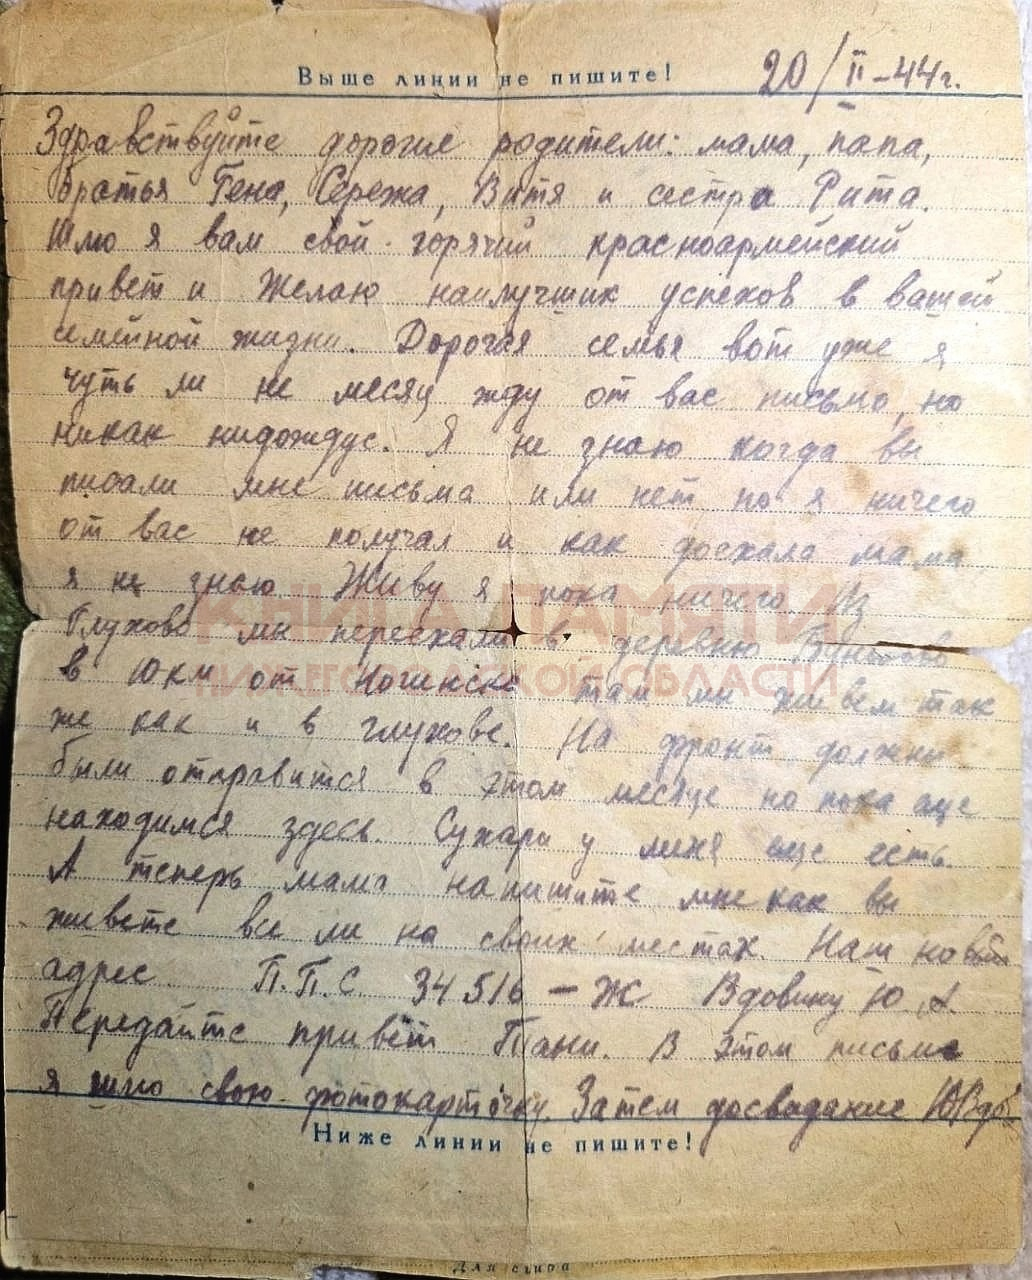 Выше линии не пишите!
20/II-44 г.
Здравствуйте дорогие родители: мама, папа,
братья Гена, Сережа, Витя и сестра Рита.
Шлю я вам свой горячий красноармейский
привет и желаю наилучших успехов в вашей
семейной жизни. Дорогая семья вот уже я
чуть ли не месяц жду от вас письмо, но
никак нидождус. Я не знаю когда вы
писали мне письма или нет но я ничего
от вас не получал и как доехала мама
я не знаю. Живу я пока ничего. Из
Глухово мы переехали в деревню
в 10 км от Ногинска там мы живем так
же как и в глухове. На фронт должны
были отправится в этом месяце но пока още
находимся здесь. Сухари у меня още есть.
А теперь мама напишите мне как вы
живете все ли на своих местах. Наш новый
адрес П.П.С. 34516-Ж Вдовину Ю. А.
Передайте привет Тани. В этом письме
я шлю свою фотокарточку. Затем досвидание ЮВдо
Ниже линии не пишите!
Для сгиба
КНИГА ПАМЯТИ
НИЖЕГОРОДСКОЙ ОБЛАСТИ